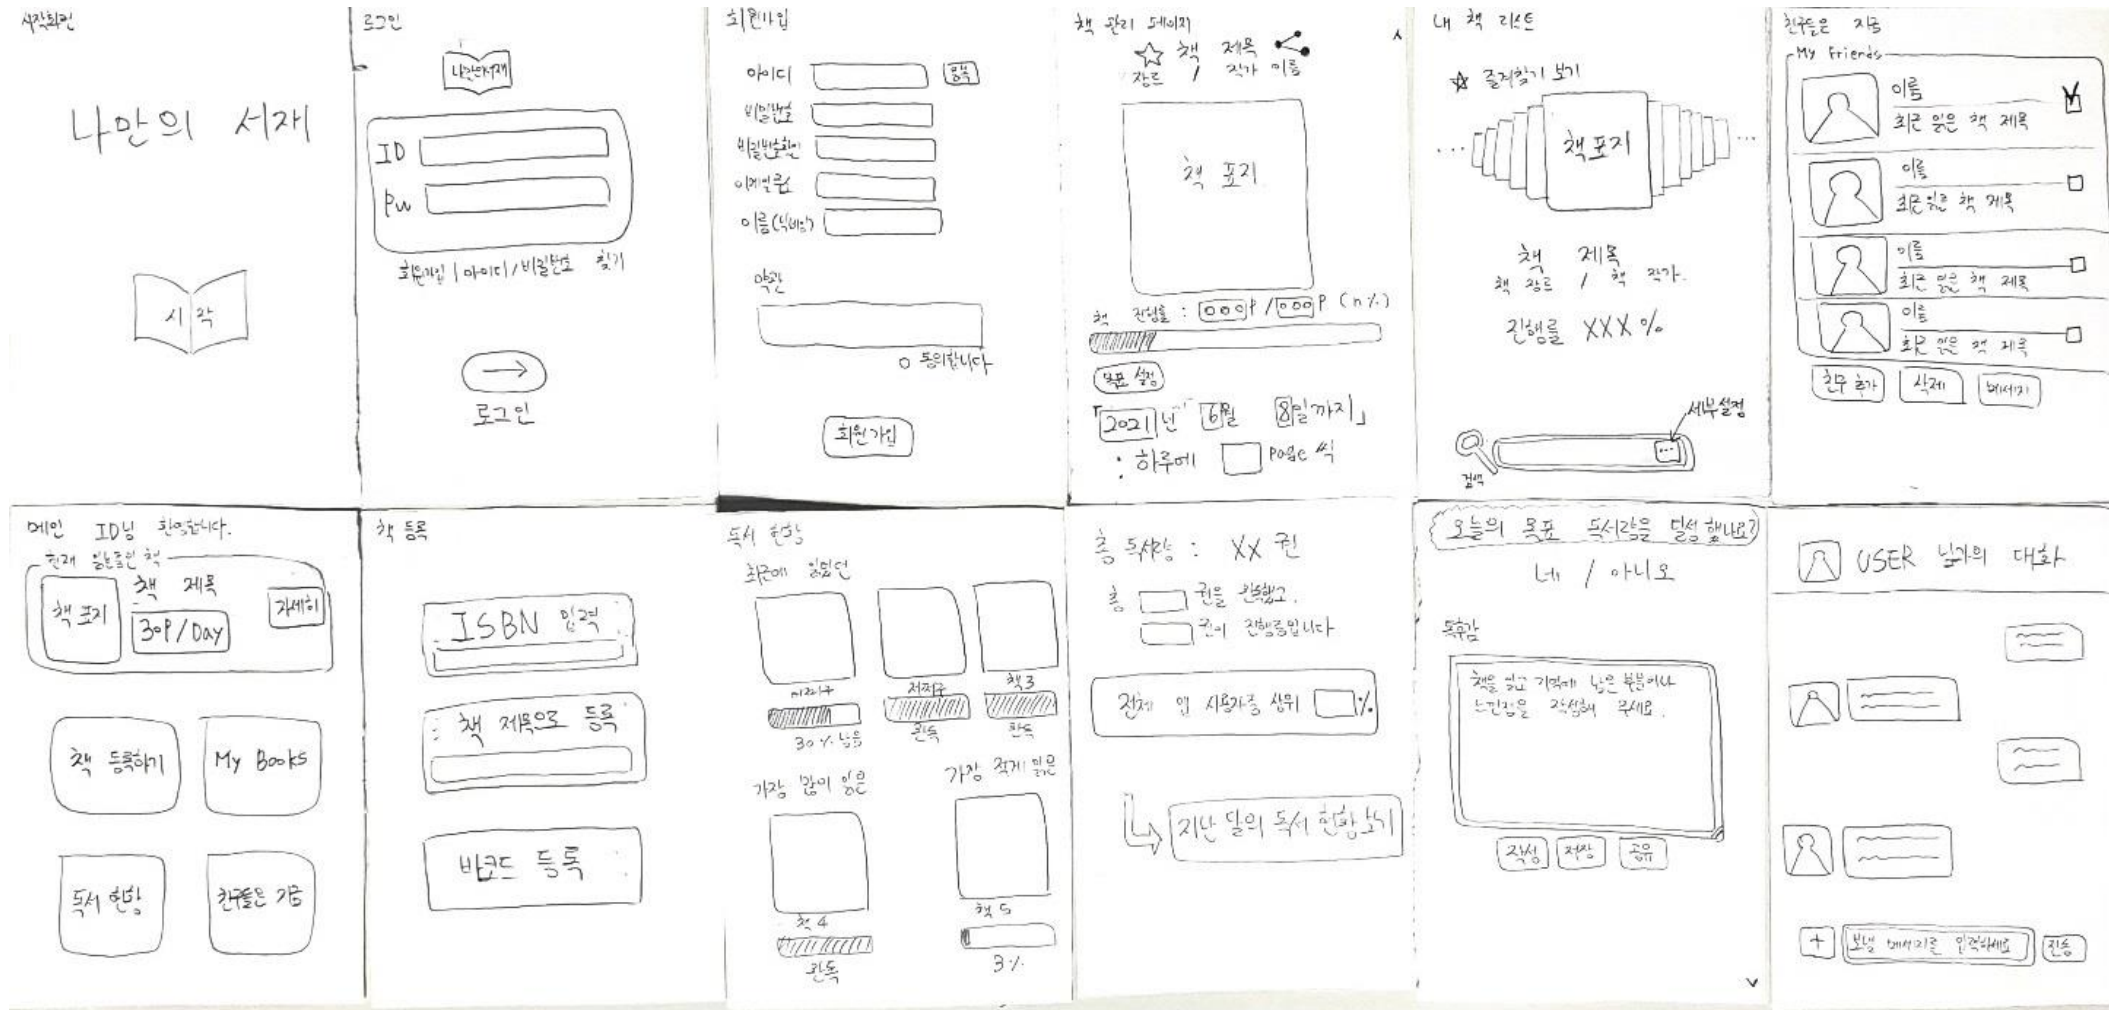 시작화면
나만의 서재
시작
로그인
나만의서재
ID
PW
회원가입 | 아이디/비밀번호 찾기
→
로그인
회원가입
아이디
중복
비밀번호
비밀번호확인
이메일주소
이름(닉네임)
약관
o 동의합니다
회원가입
책 관리 페이지
책 제목
장르 / 작가 이름
책 표지
책 진행률 : 000P / 000P (n%)
목표 설정
「2021년 6월 8일까지」
: 하루에 page 씩
내 책 리스트
☆ 즐겨찾기 보기
... 책표지 ...
책 제목
책 장르 / 책 작가
진행률 XXX%
세부설정
...
검색
친구들은 지금
My Friends
이름
최근 읽은 책 제목
이름
최근 읽은 책 제목
이름
최근 읽은 책 제목
이름
최근 읽은 책 제목
친구 추가
삭제
메세지
메인 ID님 환영합니다.
현재 읽는중인 책
책 표지
책 제목
30P/Day
자세히
책 등록하기
My Books
독서 현황
친구들은 지금
책 등록
ISBN 입력
책 제목으로 등록
바코드 등록
독서 현황
최근에 읽었던
어쩌구
저쩌구
책3
30% 남음
완독
완독
가장 많이 읽은
가장 적게 읽은
책 4
책 5
완독
3%
총 독서량 : XX 권
총 권을 완독했고,
권이 진행중입니다
전체 앱 사용자중 상위 %
지난 달의 독서 현황보기
오늘의 목표 독서량을 달성했나요?
네 / 아니오
독후감
책을 읽고 기억에 남은 부분이나
느낀점을 작성해 주세요.
작성
저장
공유
USER 님과의 대화
+
보낼 메세지를 입력하세요
전송